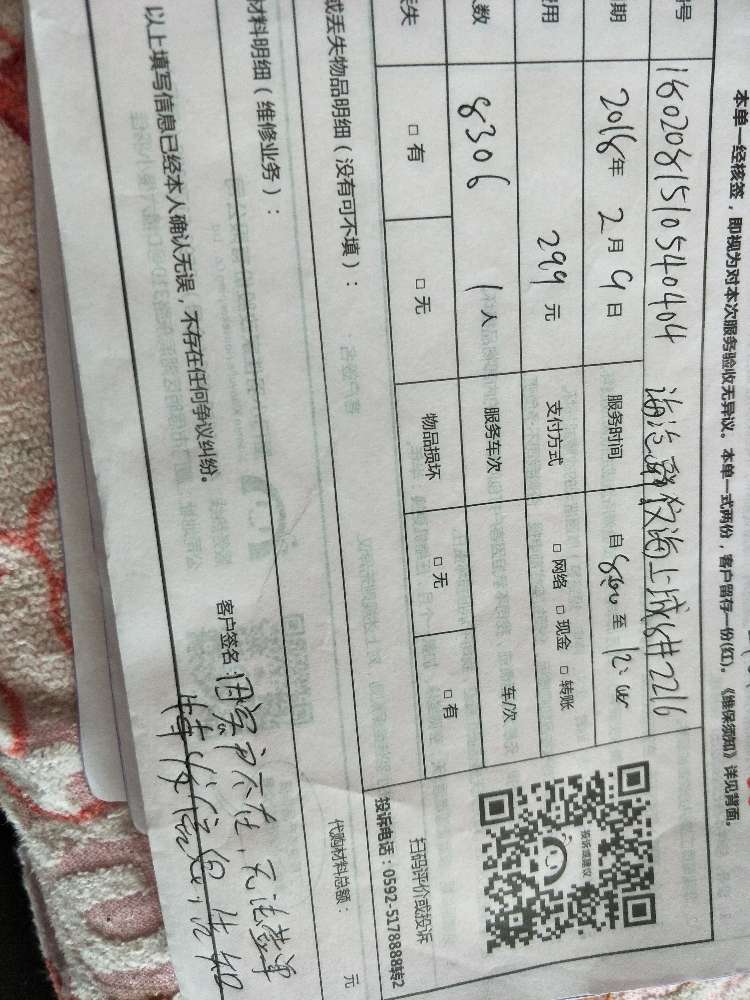 本单一经核签，即视为对本次服务验收无异议。本单一式两份，客户留存一份(红)。《维保须知》详见背面。
号 160208151054040404 海沧 海上城8#2216
期 2016年2月9日 服务时间 自8:00至12:00
费用 299元 支付方式 □网络 □现金 □转账
数 8306 1人 服务车次 车/次
丢失 □有 □无 物品损坏 □无 □有
投诉或建议
扫码评价或投诉
投诉电话：0592-5178888转2
或丢失物品明细（没有可不填）：
材料明细（维修业务）：
代购材料总额： 元
以上填写信息已经本人确认无误，不存在任何争议纠纷。
客户签名：因客户不在，无法签单
特发信息告知